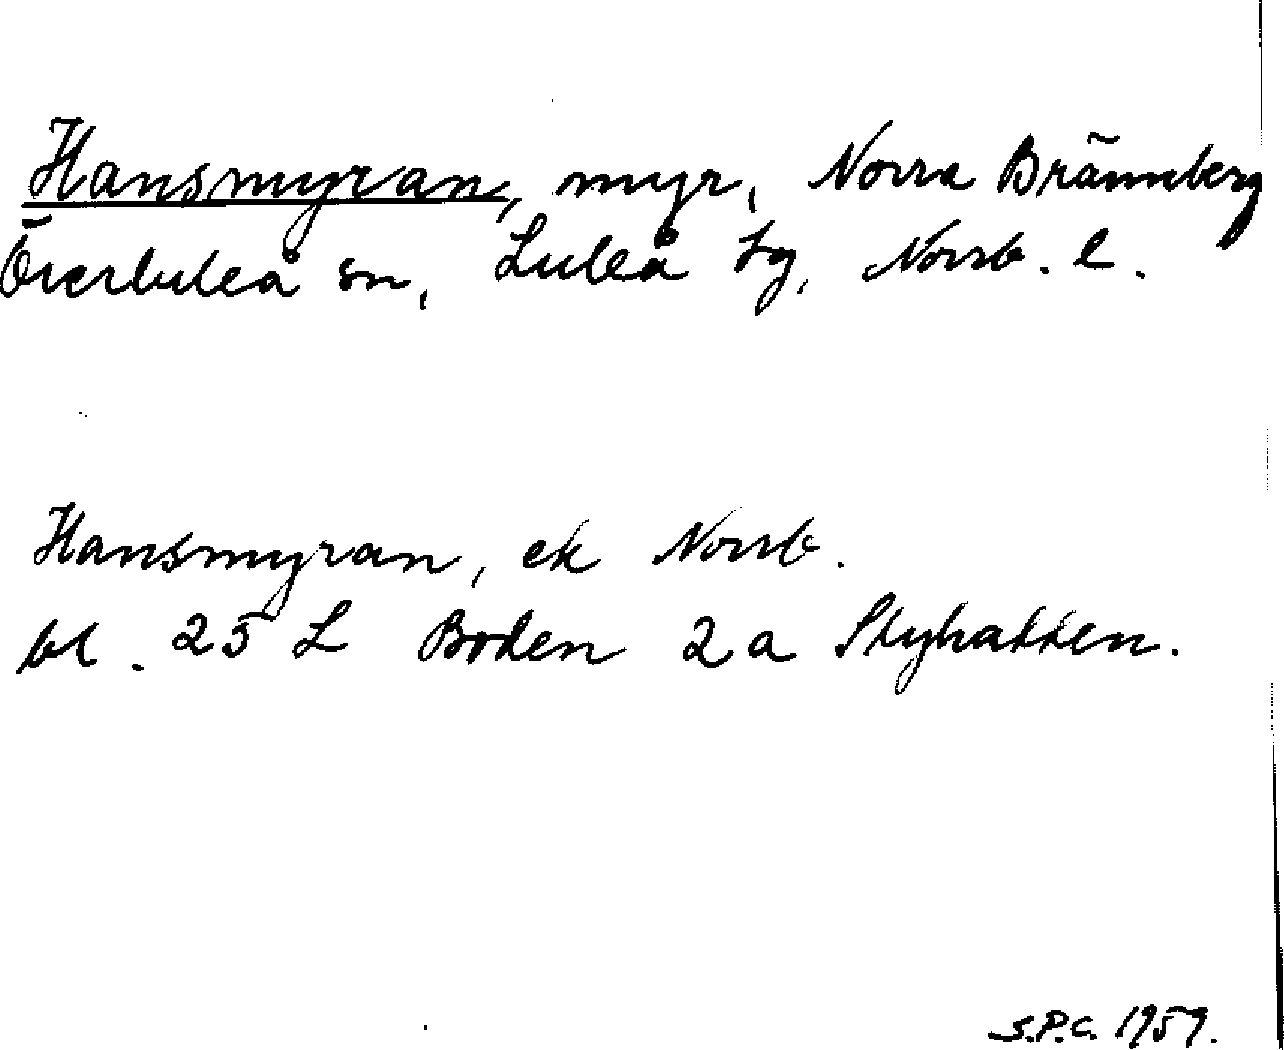 Hansmyran, myr, Norra Brännberg
Överluleå sn, Luleå tg, Norrb. l.
Hansmyran, ek Norrb.
bl. 25 L Boden 2a Skyhatten.
S.P.C. 1959.